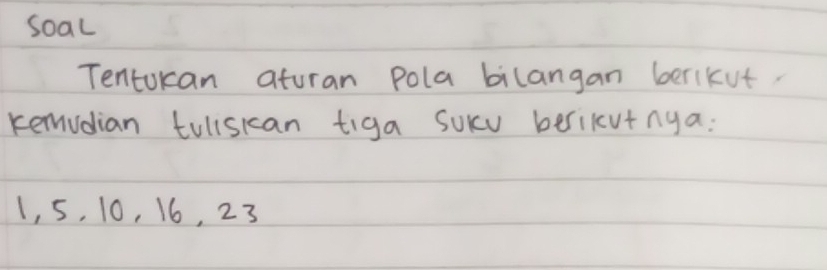 Soal
Tentukan aturan pola bilangan berikut.
Kemudian tuliskan tiga suku berikutnya:
1, 5, 10, 16, 23